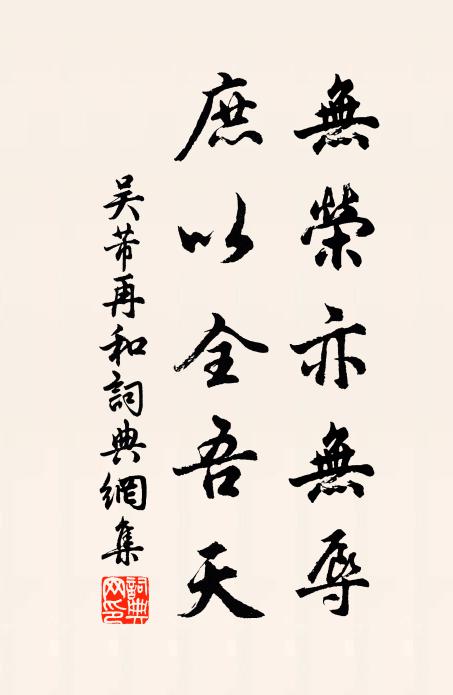 無榮亦無辱
庶以全吾天
吴芾再和詞典網集
詞典網印